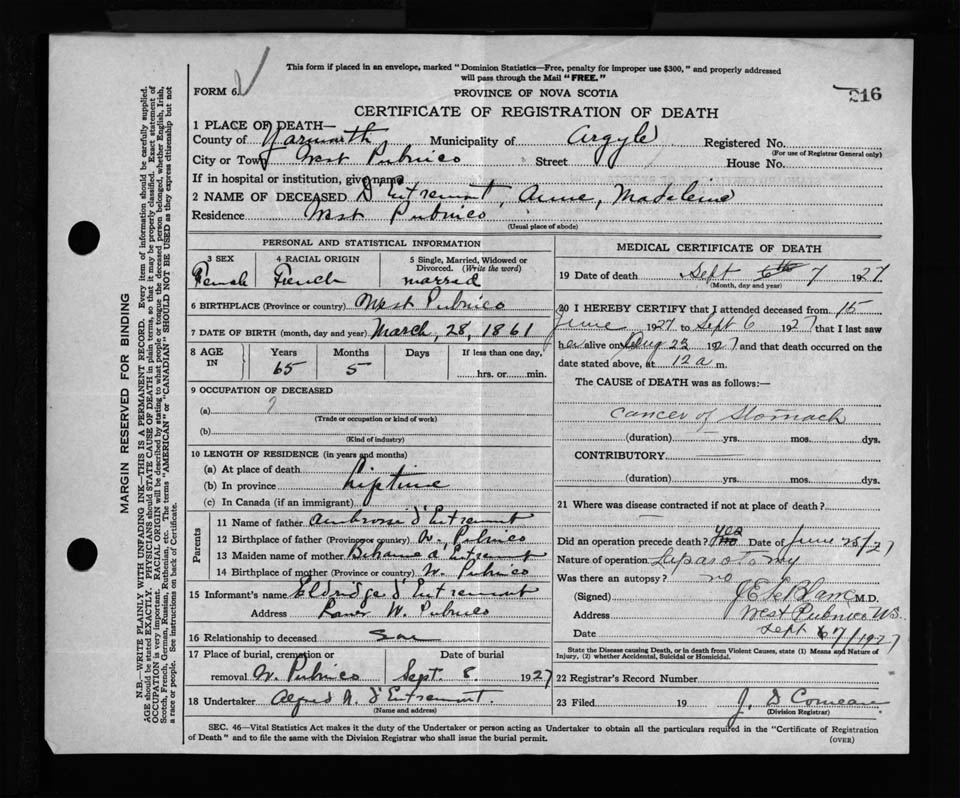 This form if placed in an envelope, marked "Dominion Statistics—Free, penalty for improper use $300," and properly addressed
will pass through the Mail "FREE."
FORM 6.
PROVINCE OF NOVA SCOTIA
216
CERTIFICATE OF REGISTRATION OF DEATH
1 PLACE OF DEATH—
County of Yarmouth Municipality of Argyle Registered No.
(For use of Registrar General only)
City or Town West Pubnico Street House No.
If in hospital or institution, give name
2 NAME OF DECEASED D'Entremont, Anne, Madeleine
Residence West Pubnico
(Usual place of abode)
PERSONAL AND STATISTICAL INFORMATION
3 SEX 4 RACIAL ORIGIN 5 Single, Married, Widowed or
Divorced. (Write the word)
Female French married
6 BIRTHPLACE (Province or country) West Pubnico
7 DATE OF BIRTH (month, day and year) March, 28, 1861
8 AGE IN Years Months Days If less than one day,
65 5 hrs. or min.
9 OCCUPATION OF DECEASED
(a) ?
(Trade or occupation or kind of work)
(b)
(Kind of industry)
10 LENGTH OF RESIDENCE (in years and months)
(a) At place of death
(b) In province Liptime
(c) In Canada (if an immigrant)
Parents
11 Name of father Ambroise d'Entremont
12 Birthplace of father (Province or country) W. Pubnico
13 Maiden name of mother d'Entremont
14 Birthplace of mother (Province or country) W. Pubnico
15 Informant's name Eldridge d'Entremont
Address W. Pubnico
16 Relationship to deceased Son
17 Place of burial, cremation or Date of burial
removal W. Pubnico Sept. 8. 1927
18 Undertaker Alfred N. d'Entremont.
(Name and address)
MEDICAL CERTIFICATE OF DEATH
19 Date of death Sept 6th 7 1927
(Month, day and year)
20 I HEREBY CERTIFY that I attended deceased from 15
June 1927 to Sept 6 1927 that I last saw
her alive on Aug 23 1927 and that death occurred on the
date stated above, at 12 a m.
The CAUSE of DEATH was as follows:
Cancer of Stomach
(duration) yrs. mos. dys.
CONTRIBUTORY
(duration) yrs. mos. dys.
21 Where was disease contracted if not at place of death?
Did an operation precede death? yes Date of June 25/27
Nature of operation Laparotomy
Was there an autopsy? no
(Signed) J E LeBlanc M.D.
Address West Pubnico N.S.
Date Sept 7/1927
State the Disease causing Death, or in death from Violent Causes, state (1) Means and Nature of
Injury, (2) whether Accidental, Suicidal or Homicidal.
22 Registrar's Record Number
23 Filed 19 J. D Comeau
(Division Registrar)
SEC. 46—Vital Statistics Act makes it the duty of the Undertaker or person acting as Undertaker to obtain all the particulars required in the "Certificate of Registration
of Death" and to file the same with the Division Registrar who shall issue the burial permit.
(OVER)
MARGIN RESERVED FOR BINDING
N.B.—WRITE PLAINLY WITH UNFADING INK—THIS IS A PERMANENT RECORD. Every item of information should be carefully supplied.
AGE should be stated EXACTLY. PHYSICIANS should STATE CAUSE OF DEATH in plain terms, so that it may be properly classified. Exact statement of
OCCUPATION is very important. RACIAL ORIGIN will be described by stating to what people or tongue the deceased person belonged, whether English, Irish,
Scotch, French, German, Russian, Ruthenian, etc. The terms "AMERICAN" or "CANADIAN" SHOULD NOT BE USED as they express citizenship but not
a race or people. See instructions on back of Certificate.